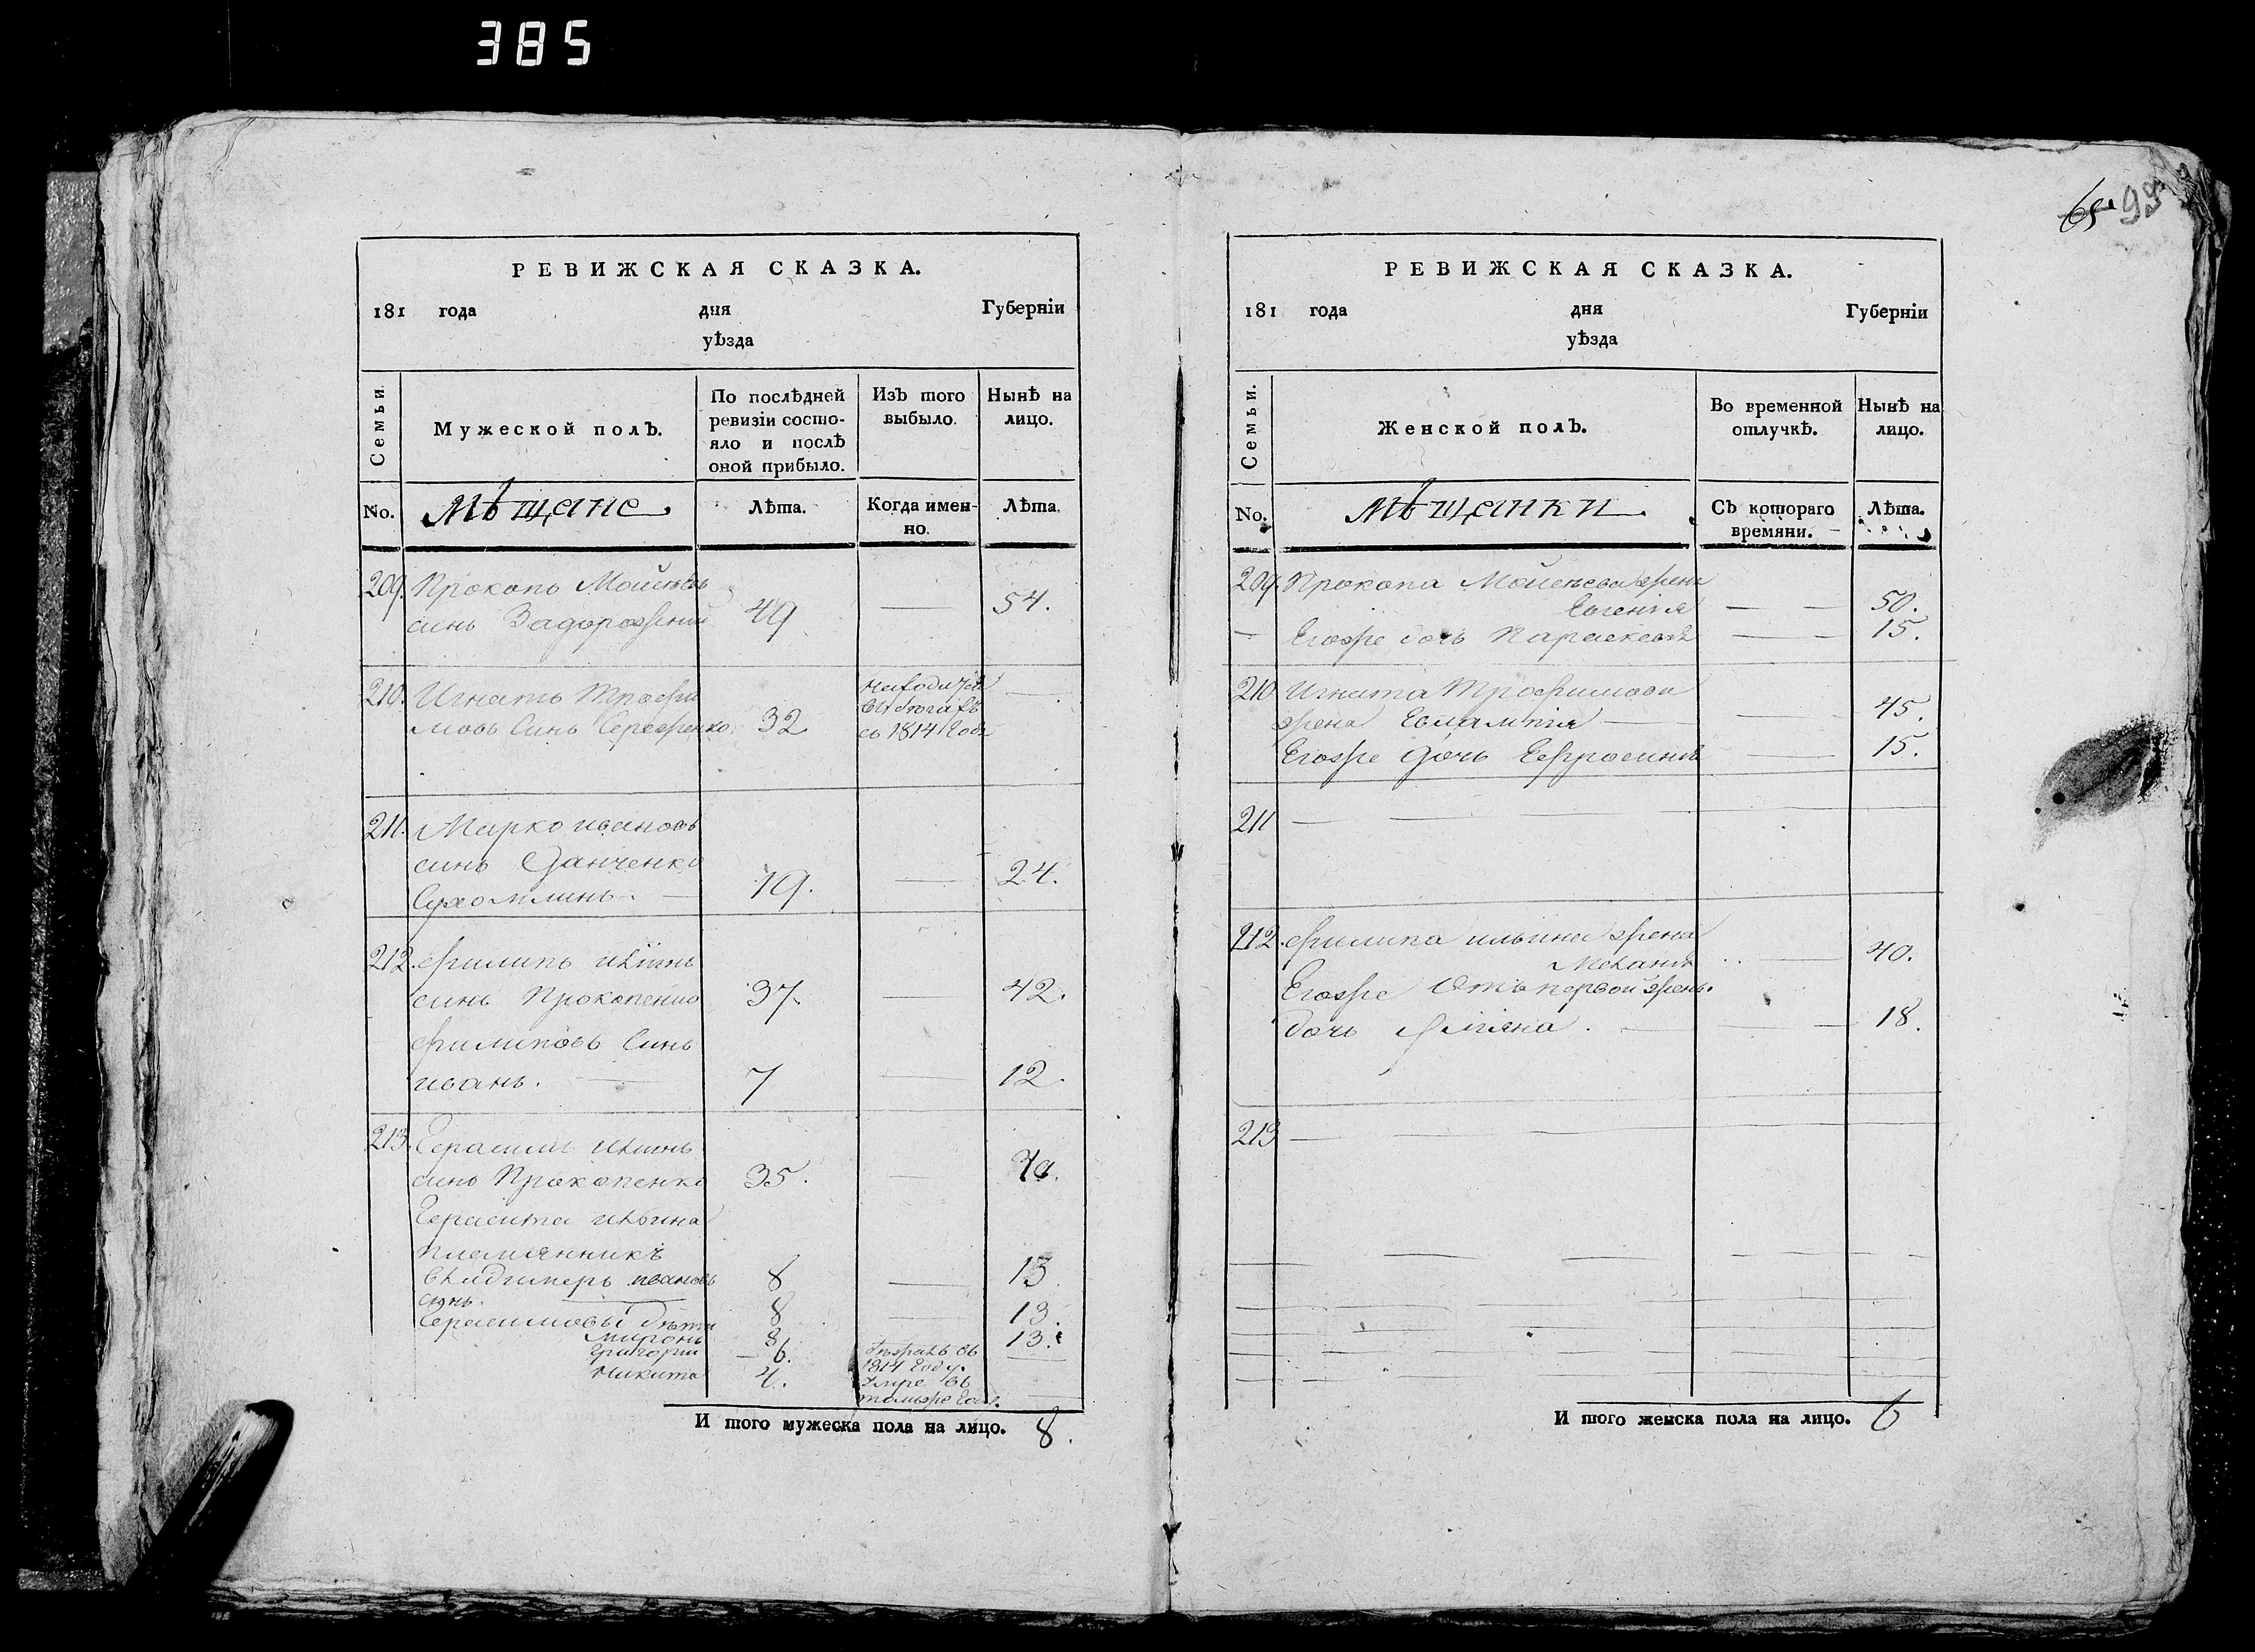 385
РЕВИЖСКАЯ СКАЗКА.
181 года дня Губерніи
уѣзда
Семьи.
Мужеской полЪ.
По послѣдней
ревизіи состо-
яло и послѣ
оной прибыло.
ИзЪ того
выбыло.
Нынѣ на
лицо.
No.
Мѣщане
Лѣта.
Когда имен-
но.
Лѣта.
209. Прокопъ Мойсѣевъ
синъ Задорожний 49 — 54.
210. Игнатъ Трофи
мовъ Синъ Сергѣенко 32
находится
въ
съ 1814 Года —
211. Марко ивановъ
синъ Данченко
Сухомлинъ. — 19. — 24.
212. филипъ илїинъ
синъ Прокопенко 37. — 42.
филиповъ Синъ
иванъ. — 7 — 12.
213. Герасимъ илїинъ
синъ Прокопенко 35. — 40.
Герасима илїина
племянникъ
Владимеръ ивановъ 8 — 13
сынъ. — 8 — 13.
Герасимовы дѣти
Миронъ 8 13.
Григорий — 6.
въ
1814 Году. —
Никита 4.
въ
томъже Годѣ. —
И того мужеска пола на лицо. 8.
65. 93
РЕВИЖСКАЯ СКАЗКА.
181 года дня Губерніи
уѣзда
Семьи.
Женской полЪ.
Во временной
отлучкѣ.
Нынѣ на
лицо.
No.
Мѣщанки.
СЪ котораго
времяни.
Лѣта.
209. Прокопа Мойсѣева жена
Евгенїя — — 50.
— Егоже дочь Параскевїя — — 15.
210 Игната Трофимова
жена Евлампїя — — 45.
Егоже дочь Ефросинїя — 15.
211 — — — —
212. филипа ильина жена
Меланїя — 40.
Егоже Отъ первой жены.
дочь Улїяна. — — 18.
213 —
И того женска пола на лицо. 6